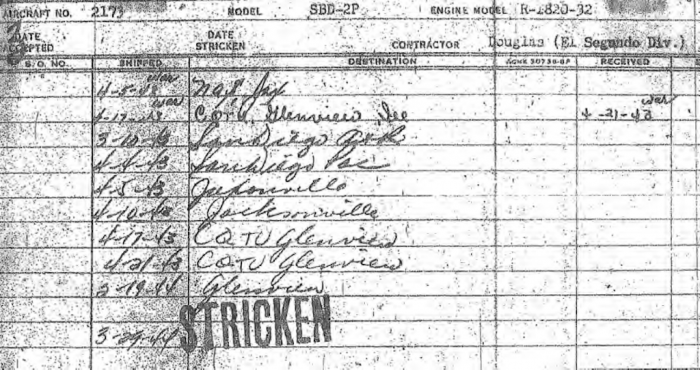 AIRCRAFT NO. 2173 MODEL SBD-2P ENGINE MODEL R-1820-32
DATE ACCEPTED DATE STRICKEN CONTRACTOR Douglas (El Segundo Div.)
S. O. NO. SHIPPED DESTINATION RECEIVED
4-5-43 war Nas Jax
4-17-43 war CQTU Glenview war 4-21-43
3-10-43 San Diego
4-4-43 San Diego Pac
4-5-43 Jacksonville
4-10-43 Jacksonville
4-17-43 CQTU Glenview
4-21-43 CQTU Glenview
2-19-44 Glenview
3-29-44 STRICKEN